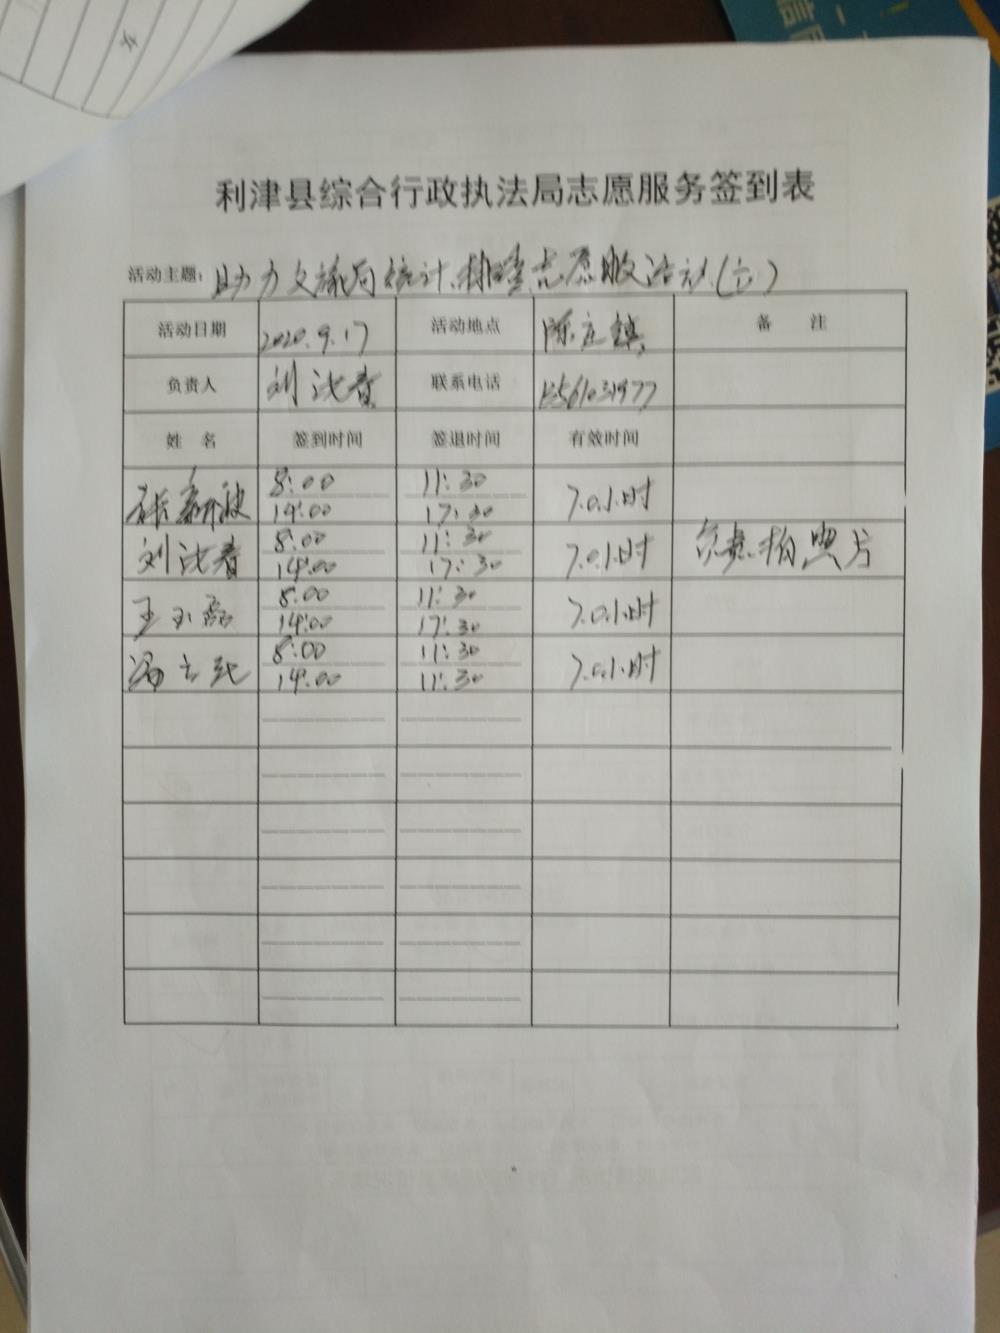 利津县综合行政执法局志愿服务签到表
活动主题: 助力文旅局统计、排查志愿服活动(六)
活动日期 2020.9.17 活动地点 陈庄镇 备 注
负责人 刘沈春 联系电话 15561031977
姓 名 签到时间 签退时间 有效时间
张新波 8:00 11:30 7.0小时
14:00 17:30
刘沈春 8:00 11:30 7.0小时 负责拍照片
14:00 17:30
王玉磊 8:00 11:30 7.0小时
14:00 17:30
冯 8:00 11:30 7.0小时
14:00 11:30